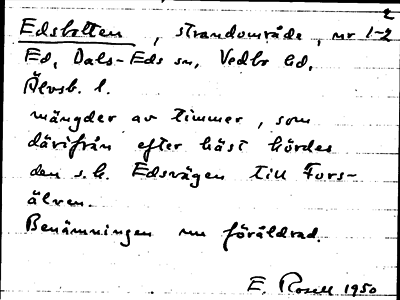 2
Edsbotten, strandområde, nr 1-2
Ed, Dals-Eds sn, Vedbo hd,
Älvsb. l.
mängder av timmer, som
därifrån efter häst kördes
den s.k. Edsvägen till Fors-
älven.
Benämningen nu föråldrad.
E. Rosell 1950